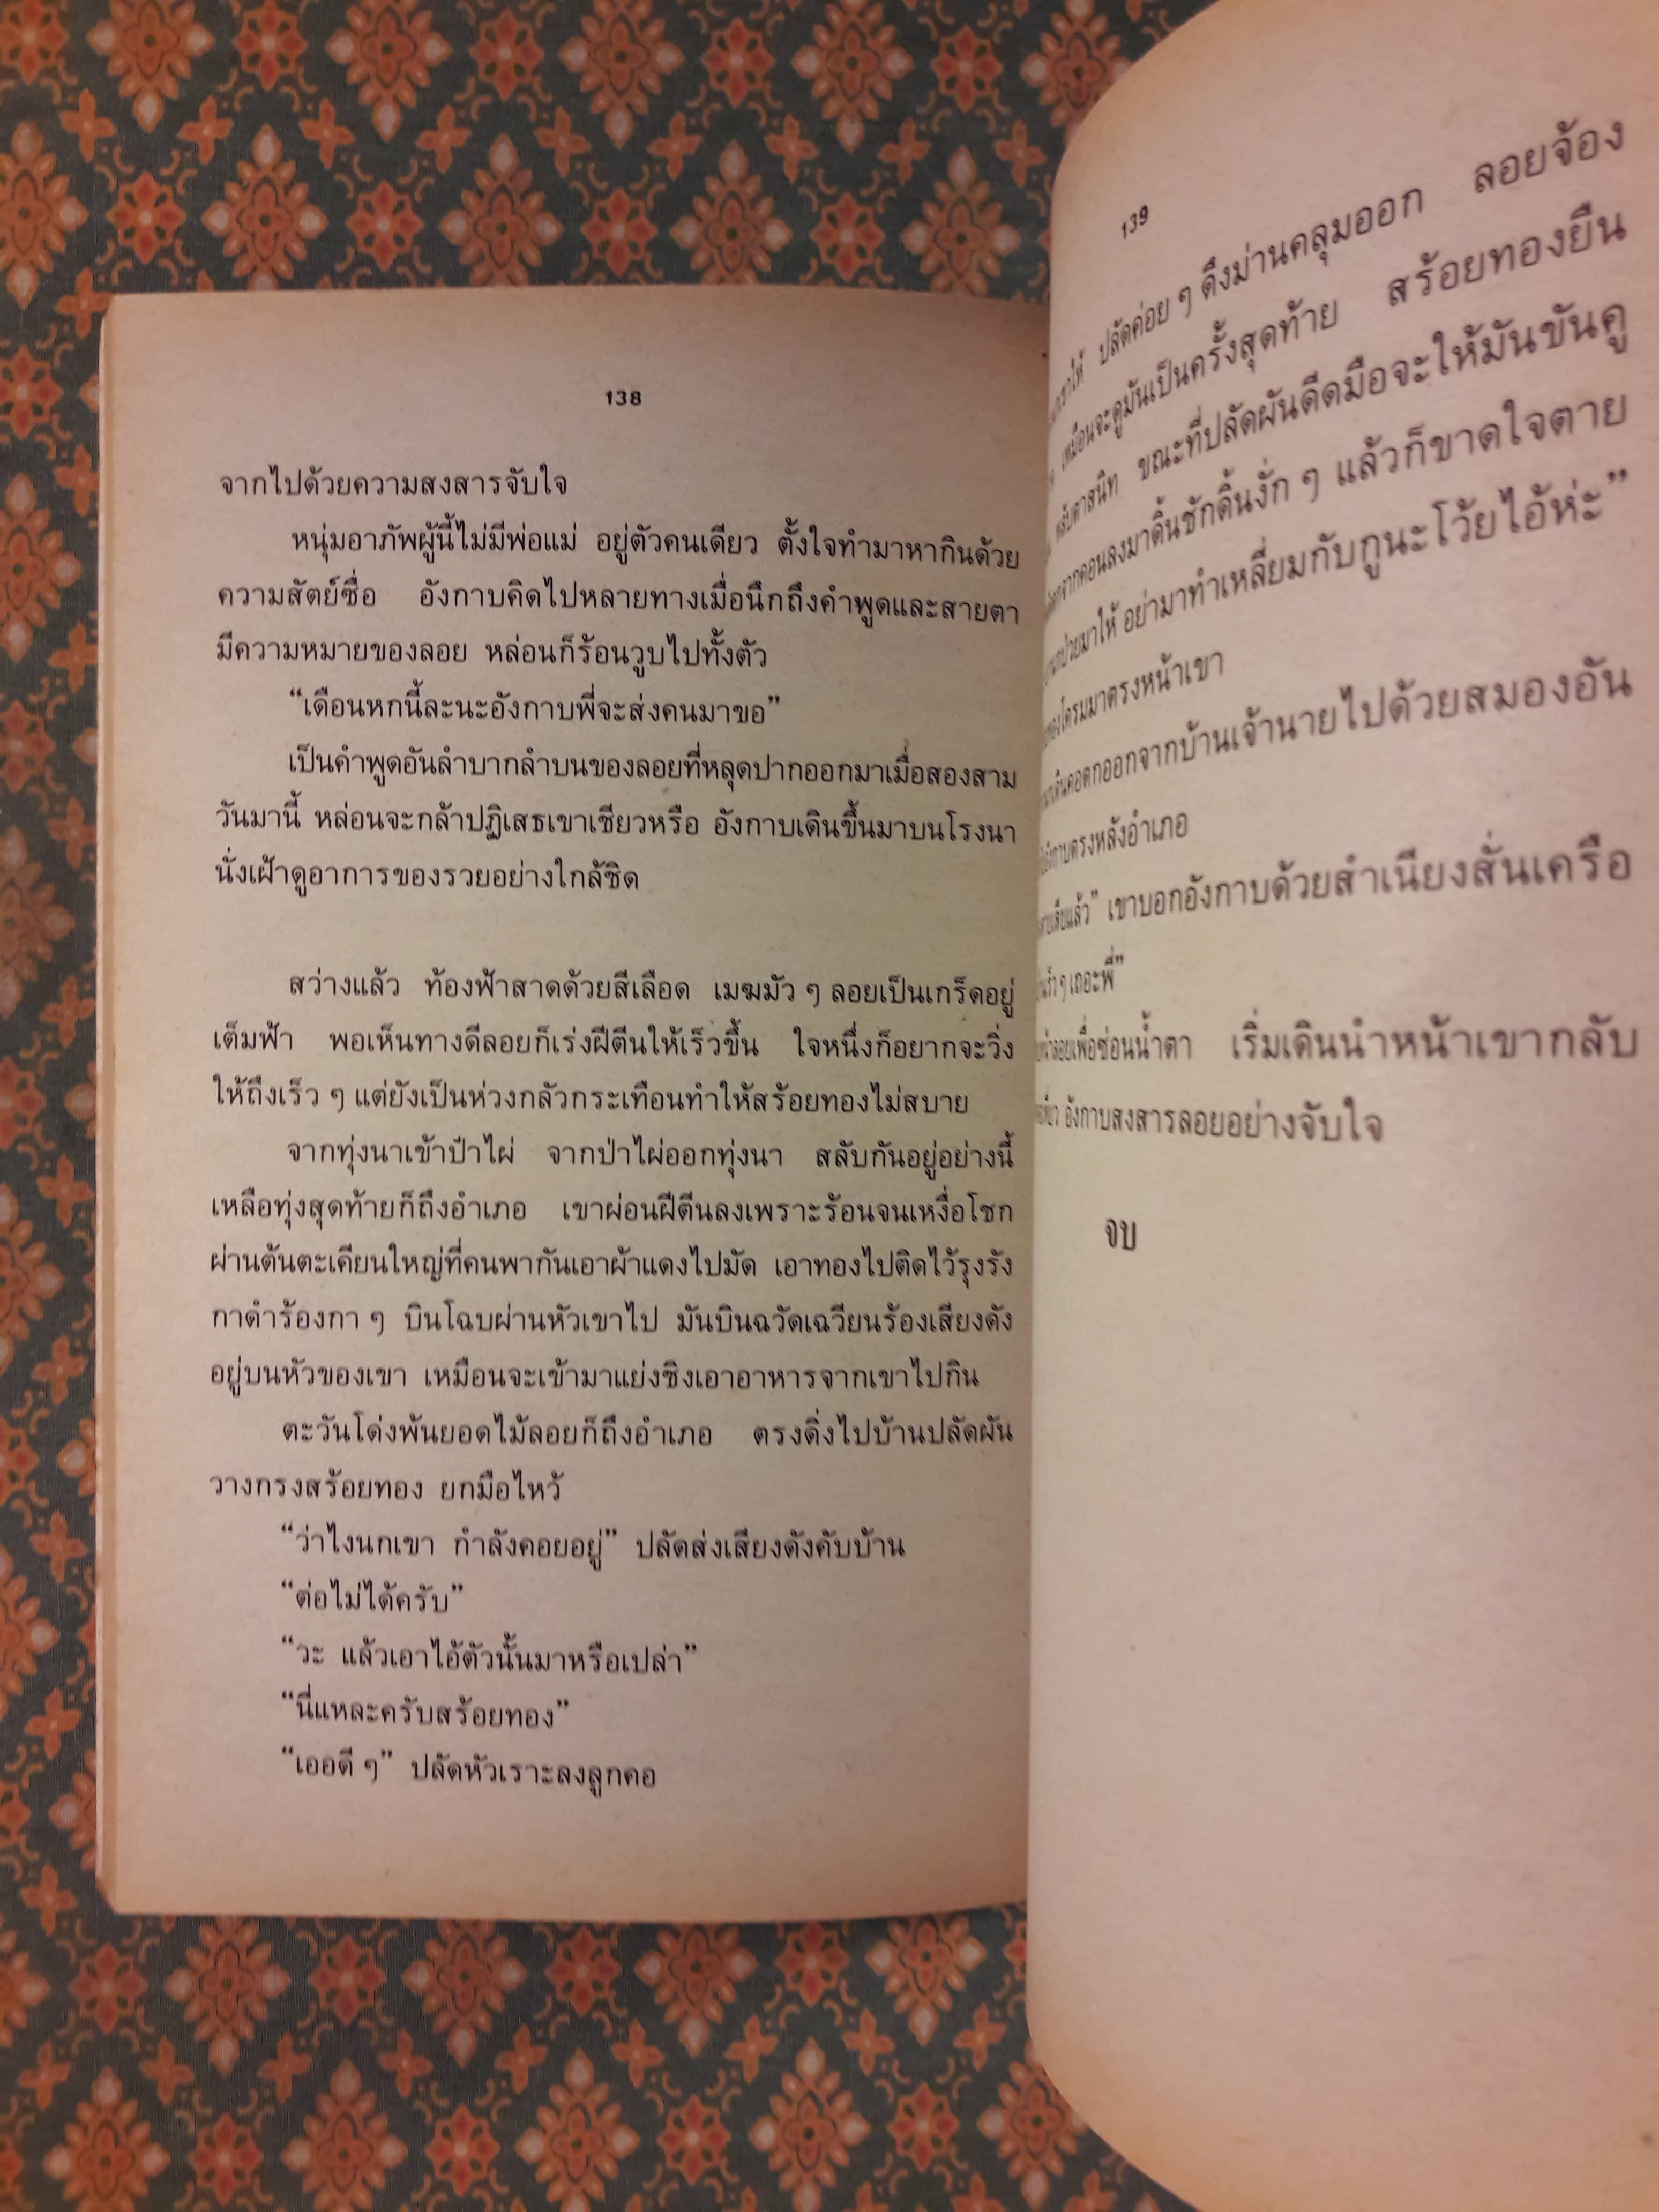 138
จากไปด้วยความสงสารจับใจ
หนุ่มอาภัพผู้นี้ไม่มีพ่อแม่ อยู่ตัวคนเดียว ตั้งใจทำมาหากินด้วย
ความสัตย์ซื่อ อังกาบคิดไปหลายทางเมื่อนึกถึงคำพูดและสายตา
มีความหมายของลอย หล่อนก็ร้อนวูบไปทั้งตัว
“เดือนหกนี้ละนะอังกาบพี่จะส่งคนมาขอ”
เป็นคำพูดอันลำบากลำบนของลอยที่หลุดปากออกมาเมื่อสองสาม
วันมานี้ หล่อนจะกล้าปฏิเสธเขาเชียวหรือ อังกาบเดินขึ้นมาบนโรงนา
นั่งเฝ้าดูอาการของรวยอย่างใกล้ชิด
สว่างแล้ว ท้องฟ้าสาดด้วยสีเลือด เมฆมัว ๆ ลอยเป็นเกร็ดอยู่
เต็มฟ้า พอเห็นทางดีลอยก็เร่งฝีตีนให้เร็วขึ้น ใจหนึ่งก็อยากจะวิ่ง
ให้ถึงเร็ว ๆ แต่ยังเป็นห่วงกลัวกระเทือนทำให้สร้อยทองไม่สบาย
จากทุ่งนาเข้าป่าไผ่ จากป่าไผ่ออกทุ่งนา สลับกันอยู่อย่างนี้
เหลือทุ่งสุดท้ายก็ถึงอำเภอ เขาผ่อนฝีตีนลงเพราะร้อนจนเหงื่อโชก
ผ่านต้นตะเคียนใหญ่ที่คนพากันเอาผ้าแดงไปมัด เอาทองไปติดไว้รุงรัง
กาดำร้องกา ๆ บินโฉบผ่านหัวเขาไป มันบินฉวัดเฉวียนร้องเสียงดัง
อยู่บนหัวของเขา เหมือนจะเข้ามาแย่งชิงเอาอาหารจากเขาไปกิน
ตะวันโด่งพ้นยอดไม้ลอยก็ถึงอำเภอ ตรงดิ่งไปบ้านปลัดผัน
วางกรงสร้อยทอง ยกมือไหว้
“ว่าไงนกเขา กำลังคอยอยู่” ปลัดส่งเสียงดังคับบ้าน
“ต่อไม่ได้ครับ”
“วะ แล้วเอาไอ้ตัวนั้นมาหรือเปล่า”
“นี่แหละครับสร้อยทอง”
“เออดี ๆ” ปลัดหัวเราะลงลูกคอ
139
ปลัดค่อย ๆ ดึงม่านคลุมออก ลอยจ้อง
เหมือนจะดูมันเป็นครั้งสุดท้าย สร้อยทองยืน
หลับตาสนิท ขณะที่ปลัดผันดีดมือจะให้มันขันคู
จากคอนลงมาดิ้นชักดิ้นงั่ก ๆ แล้วก็ขาดใจตาย
ป่วยมาให้ อย่ามาทำเหลี่ยมกับกูนะโว้ยไอ้ห่ะ”
โครมมาตรงหน้าเขา
ออกจากบ้านเจ้านายไปด้วยสมองอัน
ตรงหลังอำเภอ
เสียแล้ว” เขาบอกอังกาบด้วยสำเนียงสั่นเครือ
เถอะพี่”
ลอยเพื่อซ่อนน้ำตา เริ่มเดินนำหน้าเขากลับ
อังกาบสงสารลอยอย่างจับใจ
จบ